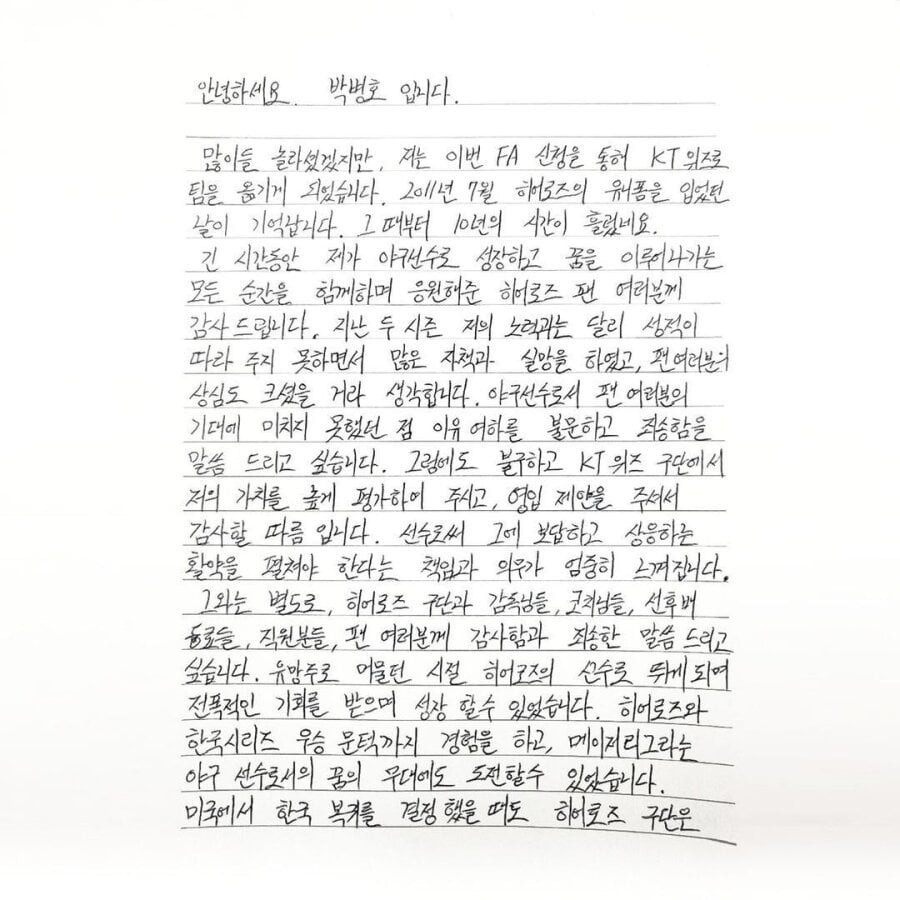 안녕하세요. 박병호 입니다.
많이들 놀라셨겠지만, 저는 이번 FA 신청을 통해 KT 위즈로
팀을 옮기게 되었습니다. 2011년 7월 히어로즈의 유니폼을 입었던
날이 기억납니다. 그 때부터 10년의 시간이 흘렀네요.
긴 시간동안 제가 야구선수로 성장하고 꿈을 이루어나가는
모든 순간을 함께하며 응원해준 히어로즈 팬 여러분께
감사드립니다. 지난 두 시즌 저의 노력과는 달리 성적이
따라 주지 못하면서 많은 자책과 실망을 하였고, 팬 여러분의
상심도 크셨을 거라 생각합니다. 야구선수로서 팬 여러분의
기대에 미치지 못했던 점 이유 여하를 불문하고 죄송함을
말씀 드리고 싶습니다. 그럼에도 불구하고 KT 위즈 구단에서
저의 가치를 높게 평가하여 주시고, 영입 제안을 주셔서
감사할 따름 입니다. 선수로써 그에 보답하고 상응하는
활약을 펼쳐야 한다는 책임과 의무가 엄중히 느껴집니다.
그와는 별도로, 히어로즈 구단과 감독님들, 코치님들, 선후배
동료들, 직원분들, 팬 여러분께 감사함과 죄송한 말씀 드리고
싶습니다. 유망주로 머물던 시절 히어로즈의 선수로 뛰게 되며
전폭적인 기회를 받으며 성장 할수 있었습니다. 히어로즈와
한국시리즈 우승 문턱까지 경험을 하고, 메이저리그라는
야구 선수로서의 꿈의 무대에도 도전할수 있었습니다.
미국에서 한국 복귀를 결정 했을 때도 히어로즈 구단은